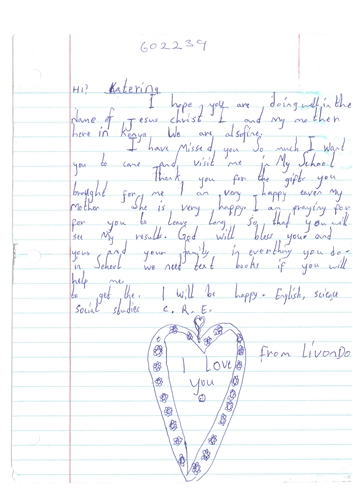 602239
Hi? Katering
I hope you are doing well in the
name of Jesus christ I and my mother
here in Kenya. We are also fine.
I have Missed you so much I want
you to came and visit me in My School
Thank you for the gifts you
brought for me I am very happy even my
Mother She is very happy. I am praying for
for you to leave long, so that you will
see My result. God will bless your and
your and your family in everthing you do
in School we need text books if you will
help me.
to get the. I will be happy. English, science
Social studies C. R. E.
from Livondo
I Love
You